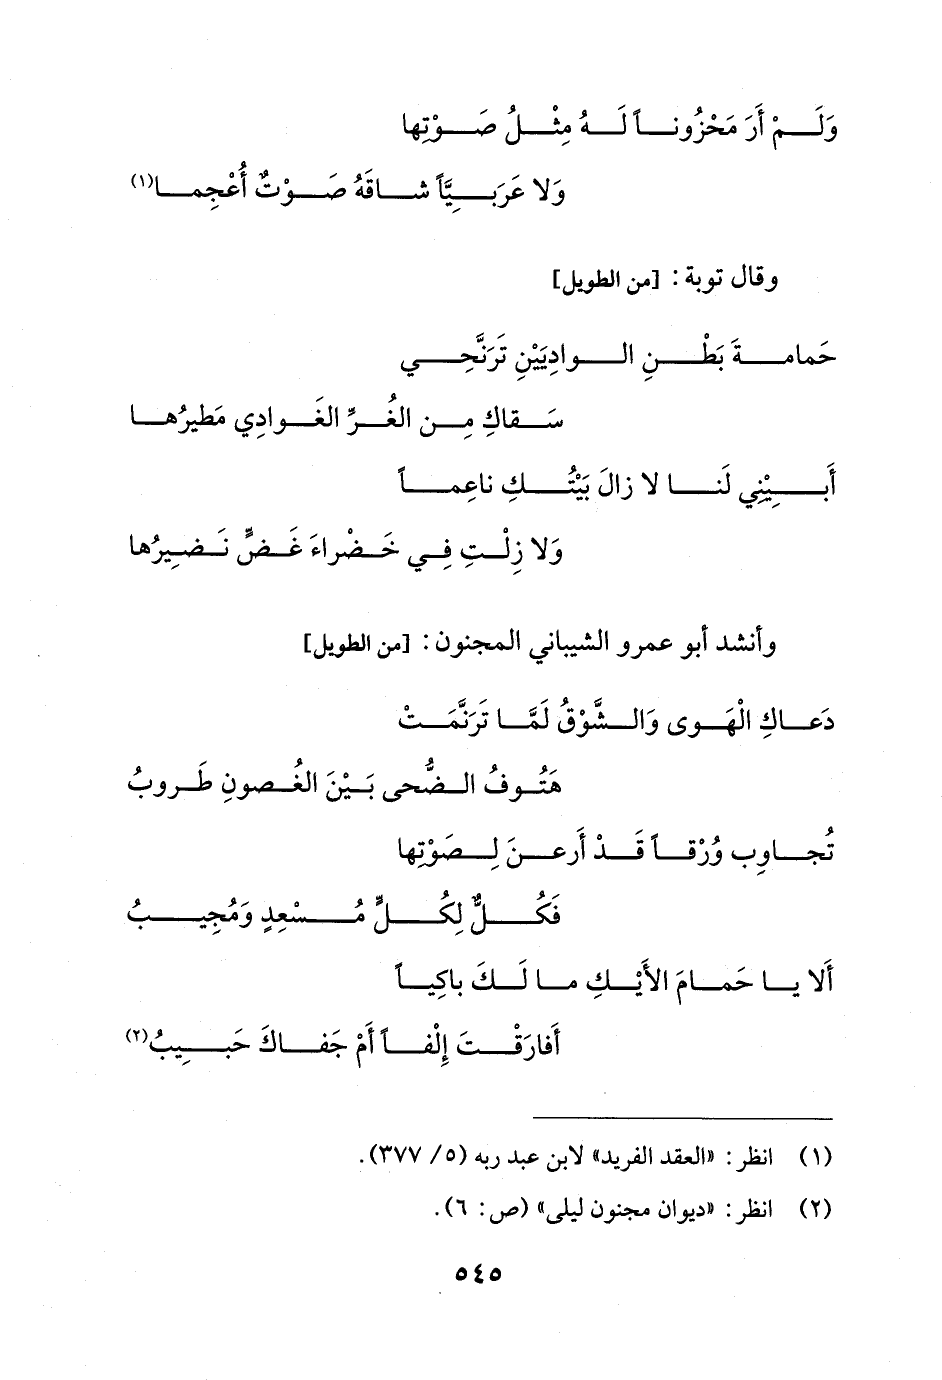 وَلَمْ أَرَ مَحْزُوناً لَهُ مِثْلُ صَوْتِها
وَلا عَرَبِيَّاً شاقَهُ صَوْتٌ أُعْجِما(١)
وقال توبة: [من الطويل]
حَمامَةَ بَطْنِ الوادِيَيْنِ تَرَنَّحِي
سَقاكِ مِن الغُرِّ الغَوادِي مَطيرُها
أَبِيْنِي لَنا لا زالَ بَيْتُكِ ناعِماً
وَلا زِلْتِ فِي خَضْراءَ غَضٍّ نَضيرُها
وأنشد أبو عمرو الشيباني المجنون: [من الطويل]
دَعاكِ الْهَوى وَالشَّوْقُ لَمَّا تَرَنَّمَتْ
هَتُوفُ الضُّحى بَيْنَ الغُصونِ طَروبُ
تُجاوِب وُرْقاً قَدْ أَرعنَ لِصَوْتِها
فَكُلٌّ لِكُلٍّ مُسْعِدٍ وَمُجِيبُ
أَلا يا حَمامَ الأَيْكِ ما لَكَ باكِياً
أَفارَقْتَ إِلْفاً أَمْ جَفاكَ حَبِيبُ(٢)
(١) انظر: «العقد الفريد» لابن عبد ربه (٥/ ٣٧٧).
(٢) انظر: «ديوان مجنون ليلى» (ص: ٦).
٥٤٥